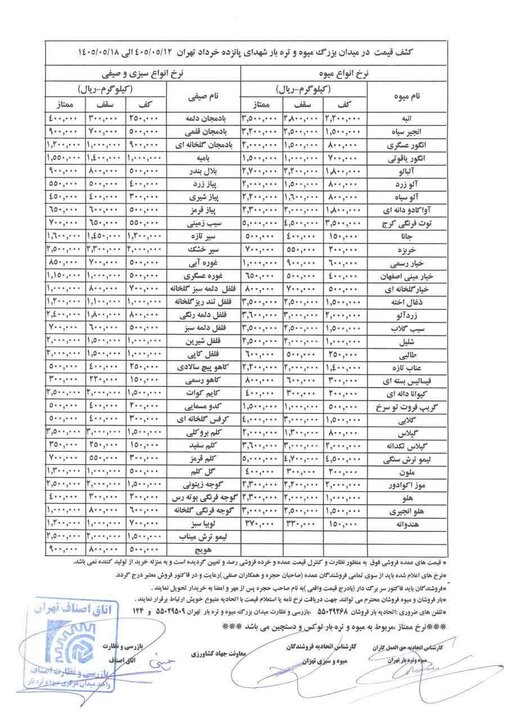 کشف قیمت در میدان بزرگ میوه و تره بار شهدای پانزده خرداد تهران ۴۰۵/۰۵/۱۲ الی ۱۴۰۵/۰۵/۱۸
نرخ انواع میوه نرخ انواع سبزی و صیفی
نام میوه (کیلوگرم-ریال) نام صیفی (کیلوگرم-ریال)
کف سقف ممتاز کف سقف ممتاز
انبه ۲,۲۰۰,۰۰۰ ۲,۸۰۰,۰۰۰ ۳,۵۰۰,۰۰۰ بادمجان دلمه ۲۵۰,۰۰۰ ۳۰۰,۰۰۰ ۴۰۰,۰۰۰
انجیر سیاه ۱,۵۰۰,۰۰۰ ۲,۵۰۰,۰۰۰ ۳,۲۰۰,۰۰۰ بادمجان قلمی ۵۰۰,۰۰۰ ۷۰۰,۰۰۰ ۹۰۰,۰۰۰
انگور عسگری ۸۰۰,۰۰۰ ۱,۵۰۰,۰۰۰ ۲,۰۰۰,۰۰۰ بادمجان گلخانه ای ۹۰۰,۰۰۰ ۱,۰۰۰,۰۰۰ ۱,۲۰۰,۰۰۰
انگور یاقوتی ۷۰۰,۰۰۰ ۱,۰۰۰,۰۰۰ ۱,۵۰۰,۰۰۰ بامیه ۱,۰۰۰,۰۰۰ ۱,۴۰۰,۰۰۰ ۱,۵۵۰,۰۰۰
آلبالو ۱,۸۰۰,۰۰۰ ۲,۲۰۰,۰۰۰ ۲,۷۰۰,۰۰۰ بلال بندر ۵۰۰,۰۰۰ ۸۰۰,۰۰۰ ۹۰۰,۰۰۰
آلو زرد ۸۰۰,۰۰۰ ۱,۵۰۰,۰۰۰ ۲,۰۰۰,۰۰۰ پیاز زرد ۴۰۰,۰۰۰ ۵۰۰,۰۰۰ ۵۵۰,۰۰۰
آلو سیاه ۸۰۰,۰۰۰ ۲,۰۰۰,۰۰۰ پیاز شیری ۳۰۰,۰۰۰ ۴۰۰,۰۰۰ ۴۵۰,۰۰۰
آواکادو دانه ای ۱,۸۰۰,۰۰۰ ۲,۰۰۰,۰۰۰ ۲,۳۰۰,۰۰۰ پیاز قرمز ۵۰۰,۰۰۰ ۶۰۰,۰۰۰ ۶۵۰,۰۰۰
توت فرنگی کرج ۳,۵۰۰,۰۰۰ ۴,۵۰۰,۰۰۰ ۵,۰۰۰,۰۰۰ سیب زمینی ۵۵۰,۰۰۰ ۶۵۰,۰۰۰ ۷۰۰,۰۰۰
جانا ۱۵۰,۰۰۰ ۴۰۰,۰۰۰ ۵۰۰,۰۰۰ سیر تازه ۱,۲۰۰,۰۰۰ ۱,۴۵۰,۰۰۰ ۱,۶۰۰,۰۰۰
خربزه ۲۰۰,۰۰۰ ۵۵۰,۰۰۰ ۷۰۰,۰۰۰ سیر خشک ۲,۰۰۰,۰۰۰ ۲,۳۰۰,۰۰۰ ۲,۵۰۰,۰۰۰
خیار رسمی ۶۰۰,۰۰۰ ۹۰۰,۰۰۰ ۱,۰۰۰,۰۰۰ غوره آبی ۵۰۰,۰۰۰ ۷۰۰,۰۰۰ ۸۵۰,۰۰۰
خیار مینی اصفهان ۴۰۰,۰۰۰ ۵۰۰,۰۰۰ ۶۵۰,۰۰۰ غوره عسگری ۵۰۰,۰۰۰ ۱,۰۰۰,۰۰۰ ۱,۱۵۰,۰۰۰
خیارگلخانه ای ۵۰۰,۰۰۰ ۷۰۰,۰۰۰ ۸۰۰,۰۰۰ فلفل دلمه سبز گلخانه ۷۰۰,۰۰۰ ۸۰۰,۰۰۰ ۱,۰۰۰,۰۰۰
ذغال اخته ۱,۵۰۰,۰۰۰ ۲,۵۰۰,۰۰۰ ۳,۵۰۰,۰۰۰ فلفل تند ریزگلخانه ۱,۰۰۰,۰۰۰ ۱,۱۰۰,۰۰۰ ۱,۲۰۰,۰۰۰
زردآلو ۲,۰۰۰,۰۰۰ ۳,۰۰۰,۰۰۰ ۳,۶۰۰,۰۰۰ فلفل دلمه رنگی ۸۰۰,۰۰۰ ۱,۸۰۰,۰۰۰ ۲,۴۰۰,۰۰۰
سیب گلاب ۱,۵۰۰,۰۰۰ ۲,۵۰۰,۰۰۰ ۳,۵۰۰,۰۰۰ فلفل دلمه سبز ۵۰۰,۰۰۰ ۶۰۰,۰۰۰ ۷۰۰,۰۰۰
شلیل ۱,۰۰۰,۰۰۰ ۲,۰۰۰,۰۰۰ ۲,۵۰۰,۰۰۰ فلفل شیرین ۱,۰۰۰,۰۰۰ ۱,۵۰۰,۰۰۰ ۲,۰۰۰,۰۰۰
طالبی ۲۵۰,۰۰۰ ۵۰۰,۰۰۰ ۶۰۰,۰۰۰ فلفل کاپی ۱,۰۰۰,۰۰۰ ۱,۵۰۰,۰۰۰ ۲,۰۰۰,۰۰۰
عناب تازه ۱,۴۰۰,۰۰۰ ۲,۰۰۰,۰۰۰ ۲,۲۰۰,۰۰۰ کاهو پیچ سالادی ۲۵۰,۰۰۰ ۴۰۰,۰۰۰ ۵۰۰,۰۰۰
فیسالیس بسته ای ۳۰۰,۰۰۰ ۶۰۰,۰۰۰ ۸۰۰,۰۰۰ کاهو رسمی ۱۵۰,۰۰۰ ۲۲۰,۰۰۰ ۳۰۰,۰۰۰
کیوانا دانه ای ۲۰۰,۰۰۰ ۳۰۰,۰۰۰ ۴۰۰,۰۰۰ کایم کوات ۱,۵۰۰,۰۰۰ ۲,۰۰۰,۰۰۰ ۲,۵۰۰,۰۰۰
گریپ فروت تو سرخ ۵۰۰,۰۰۰ ۱,۰۰۰,۰۰۰ ۱,۵۰۰,۰۰۰ کدو مسمایی ۲۰۰,۰۰۰ ۴۰۰,۰۰۰ ۵۰۰,۰۰۰
گلابی ۱,۵۰۰,۰۰۰ ۴,۰۰۰,۰۰۰ کرفس گلخانه ای ۳۰۰,۰۰۰ ۴۰۰,۰۰۰ ۵۰۰,۰۰۰
گیلاس ۸۰۰,۰۰۰ ۲,۰۰۰,۰۰۰ کلم بروکلی ۱,۵۰۰,۰۰۰ ۳,۰۰۰,۰۰۰ ۳,۵۰۰,۰۰۰
گیلاس تکدانه ۲,۰۰۰,۰۰۰ ۳,۰۰۰,۰۰۰ ۳,۶۰۰,۰۰۰ کلم سفید ۱۵۰,۰۰۰ ۲۵۰,۰۰۰ ۳۵۰,۰۰۰
لیمو ترش سنگی ۴,۵۰۰,۰۰۰ ۴,۷۰۰,۰۰۰ ۵,۰۰۰,۰۰۰ کلم قرمز ۳۰۰,۰۰۰ ۵۵۰,۰۰۰ ۷۰۰,۰۰۰
ملون ۲۰۰,۰۰۰ ۳۰۰,۰۰۰ ۴۰۰,۰۰۰ گل کلم ۵۰۰,۰۰۰ ۱,۰۰۰,۰۰۰ ۱,۳۰۰,۰۰۰
موز اکوادور ۲,۰۰۰,۰۰۰ ۲,۲۰۰,۰۰۰ ۲,۳۰۰,۰۰۰ گوجه زیتونی ۱,۵۰۰,۰۰۰ ۲,۰۰۰,۰۰۰ ۲,۵۰۰,۰۰۰
هلو ۱,۰۰۰,۰۰۰ ۲,۰۰۰,۰۰۰ ۲,۳۰۰,۰۰۰ گوجه فرنگی بوته رس ۲۰۰,۰۰۰ ۳۰۰,۰۰۰ ۴۰۰,۰۰۰
هلو انجیری ۱,۵۰۰,۰۰۰ ۲,۰۰۰,۰۰۰ ۳,۰۰۰,۰۰۰ گوجه فرنگی گلخانه ۶۰۰,۰۰۰ ۸۰۰,۰۰۰ ۱,۰۰۰,۰۰۰
هندوانه ۱۵۰,۰۰۰ ۳۳۰,۰۰۰ ۳۷۰,۰۰۰ لوبیا سبز ۵۰۰,۰۰۰ ۱,۰۰۰,۰۰۰ ۱,۲۰۰,۰۰۰
لیمو ترش میناب ۱,۵۰۰,۰۰۰ ۲,۰۰۰,۰۰۰ ۲,۵۰۰,۰۰۰
هویج ۵۰۰,۰۰۰ ۸۰۰,۰۰۰ ۹۰۰,۰۰۰
* قیمت های عمده فروشی فوق به منظور نظارت و کنترل قیمت عمده و خرده فروشی رصد و تعیین گردیده است و به منزله خرید از تولید کننده نمی باشد.
*نرخ های اعلام شده باید از سوی تمامی فروشندگان عمده (صاحبان حجره و همکاران صنفی )رعایت و در فاکتور فروش معتبر درج گردد.
*فروشندگان باید فاکتور سر برگ دار (بادرج قیمت واقعی )به نام صاحب حجره پس از مهر و امضا به خریداران تحویل نمایند.
*بار فروشان و میوه فروشان محترم می توانند جهت دریافت نرخ نامه یا استعلام قیمت با اتحادیه متبوع خویش ارتباط برقرار نمایند.
*تلفن های ضروری :اتحادیه بار فروشان ۵۵۰۲۹۲۶۸ نظارت میدان بزرگ میوه و تره بار تهران ۵۵۰۲۹۵۰۹ و ۱۲۴
***نرخ ممتاز ;مربوط به میوه و تره بار لوکس و دستچین می باشد ***
کارشناس اتحادیه حق العمل کاران میوه و تره بار تهران
کارشناس اتحادیه فروشندگان میوه و سبزی تهران
معاونت جهاد کشاورزی
بازرسی و نظارت اتاق اصناف
اتاق اصناف تهران
بازرسی و نظارت اصناف
واحد میدان مرکزی میوه و تره بار